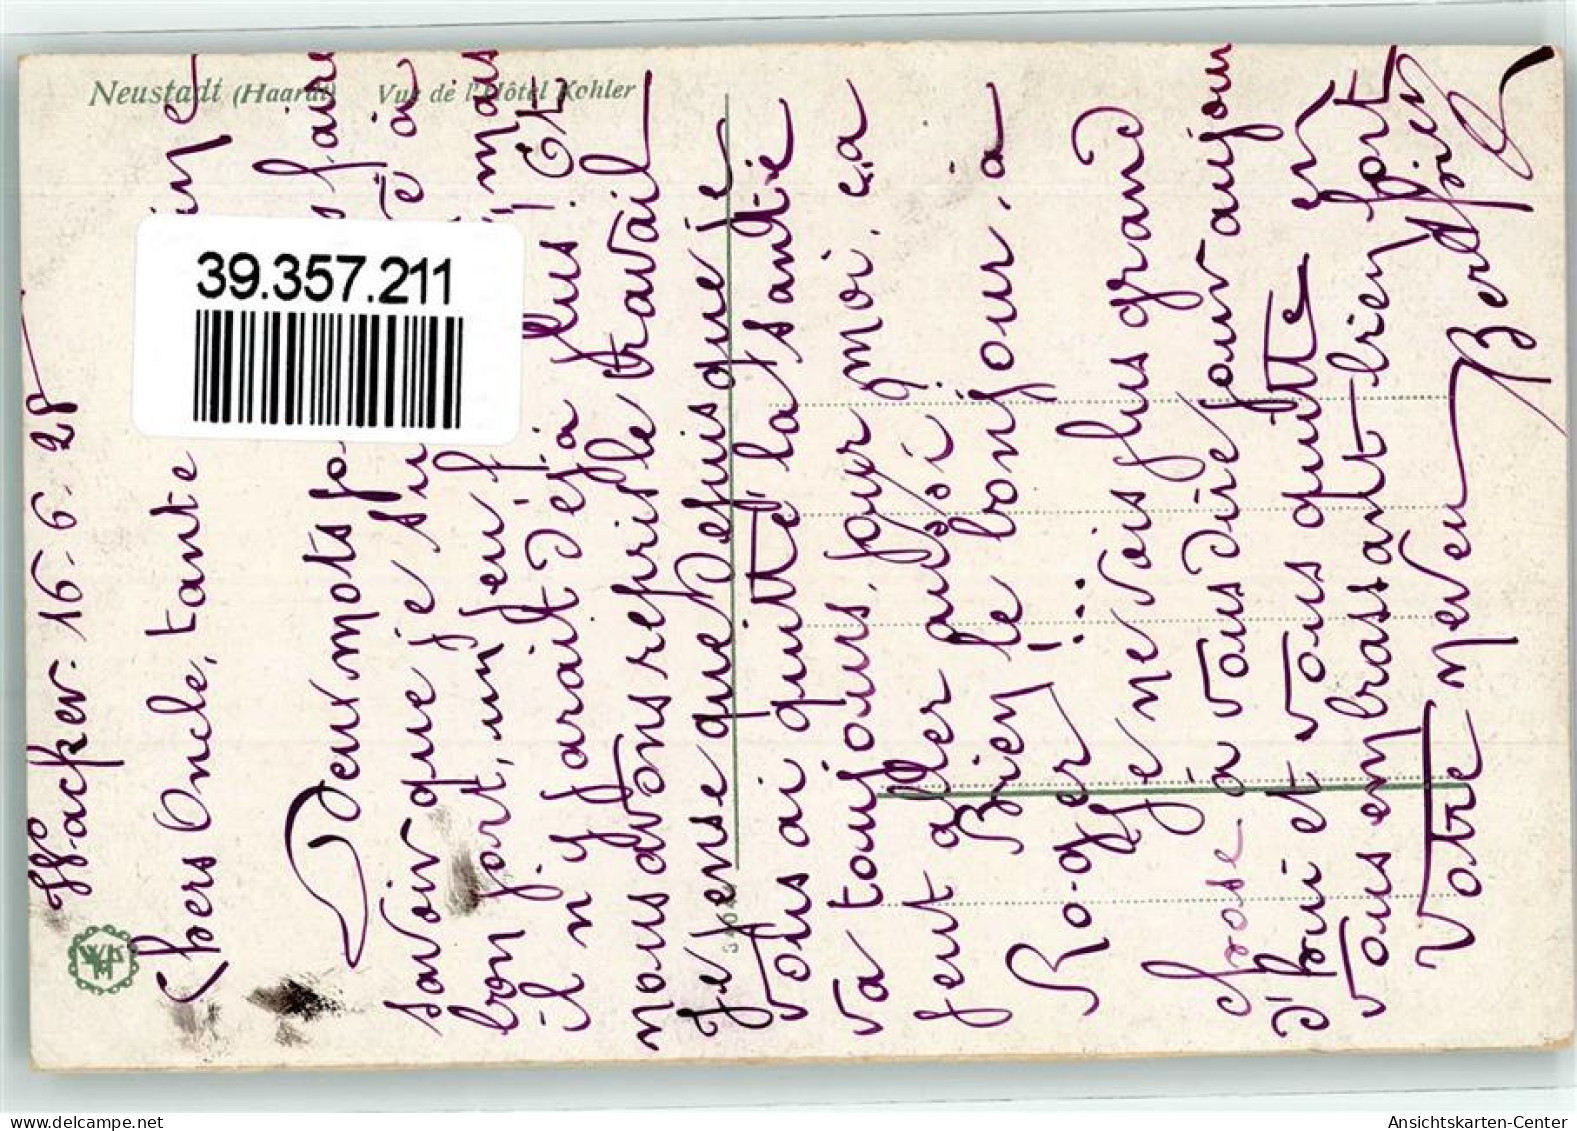 Neustadt (Haardt) Vue de l'Hôtel Kohler
39.357.211
Wacker. 16-6-28
Chers Oncle, tante
Deux mots faire
savoir que je su à
bon port, un peu mas
il n'y parait déjà plus! Et
nous avons repris le travail
Je pense que depuis que je
vous ai quitté, la santé
va toujours. pour moi, ça
peut aller aussi
Bien le bonjour. à
Roger!...
Je ne vois plus grand
chose à vous dire pour aujour
d'hui et vous quitte en
vous embrassant bien fort
Votre neveu
delcampe.net
Ansichtskarten-Center